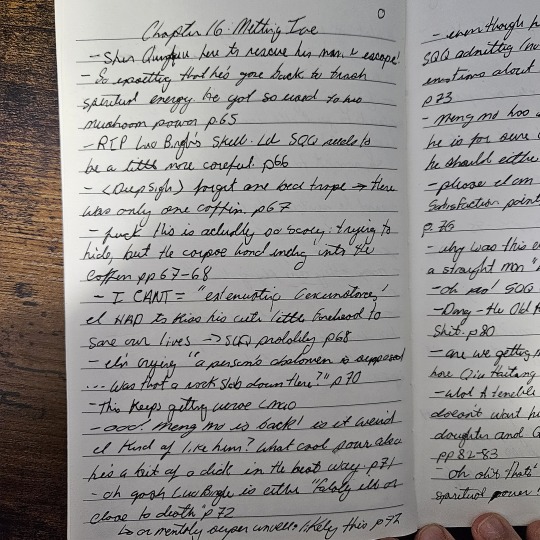 Chapter 16: Melting Ice
- Shen Qingqiu here to rescue his man & escape!
- So upsetting that he's gone back to trash
spiritual energy he got so used to his
mushroom power p65
- RIP Luo Binghe's Skull. Lol SQQ needs to
be a little more careful. p66
- <Deep Sigh> forget one bed trope → there
was only one coffin. p67
- fuck this is actually so scary: trying to
hide, but the corpse hand into the
coffin pp 67-68
- I CANT = "extenuating circumstances"
I HAD to kiss his cute little forehead to
save our lives → SQQ probably p68
- I'm crying "a person's abdomen is supposed
... was that a rock slab down there?" p70
- this keeps getting worse lmao
- ooo! Meng mo is back! is it weird
I kind of like him? What cool power also
he's a bit of a dick in the best way p71
- oh gosh Luo Binghe is either "fatally ill or
close to death" p72
↳ or mentally super unwell. likely this p72
- even though h
SQQ admitting
emotions about
p73
- Meng mo has
he is for sure
he should either
- please I am
Satisfaction point
p.76
- why was this
a straight man"
- oh no! SQQ
- Dang - the Old
Shit. p80
- are we getting
have Qiu Haitang
- what a terrible
doesn't want
daughter and
pp 82-83
- oh shit that's
spiritual power